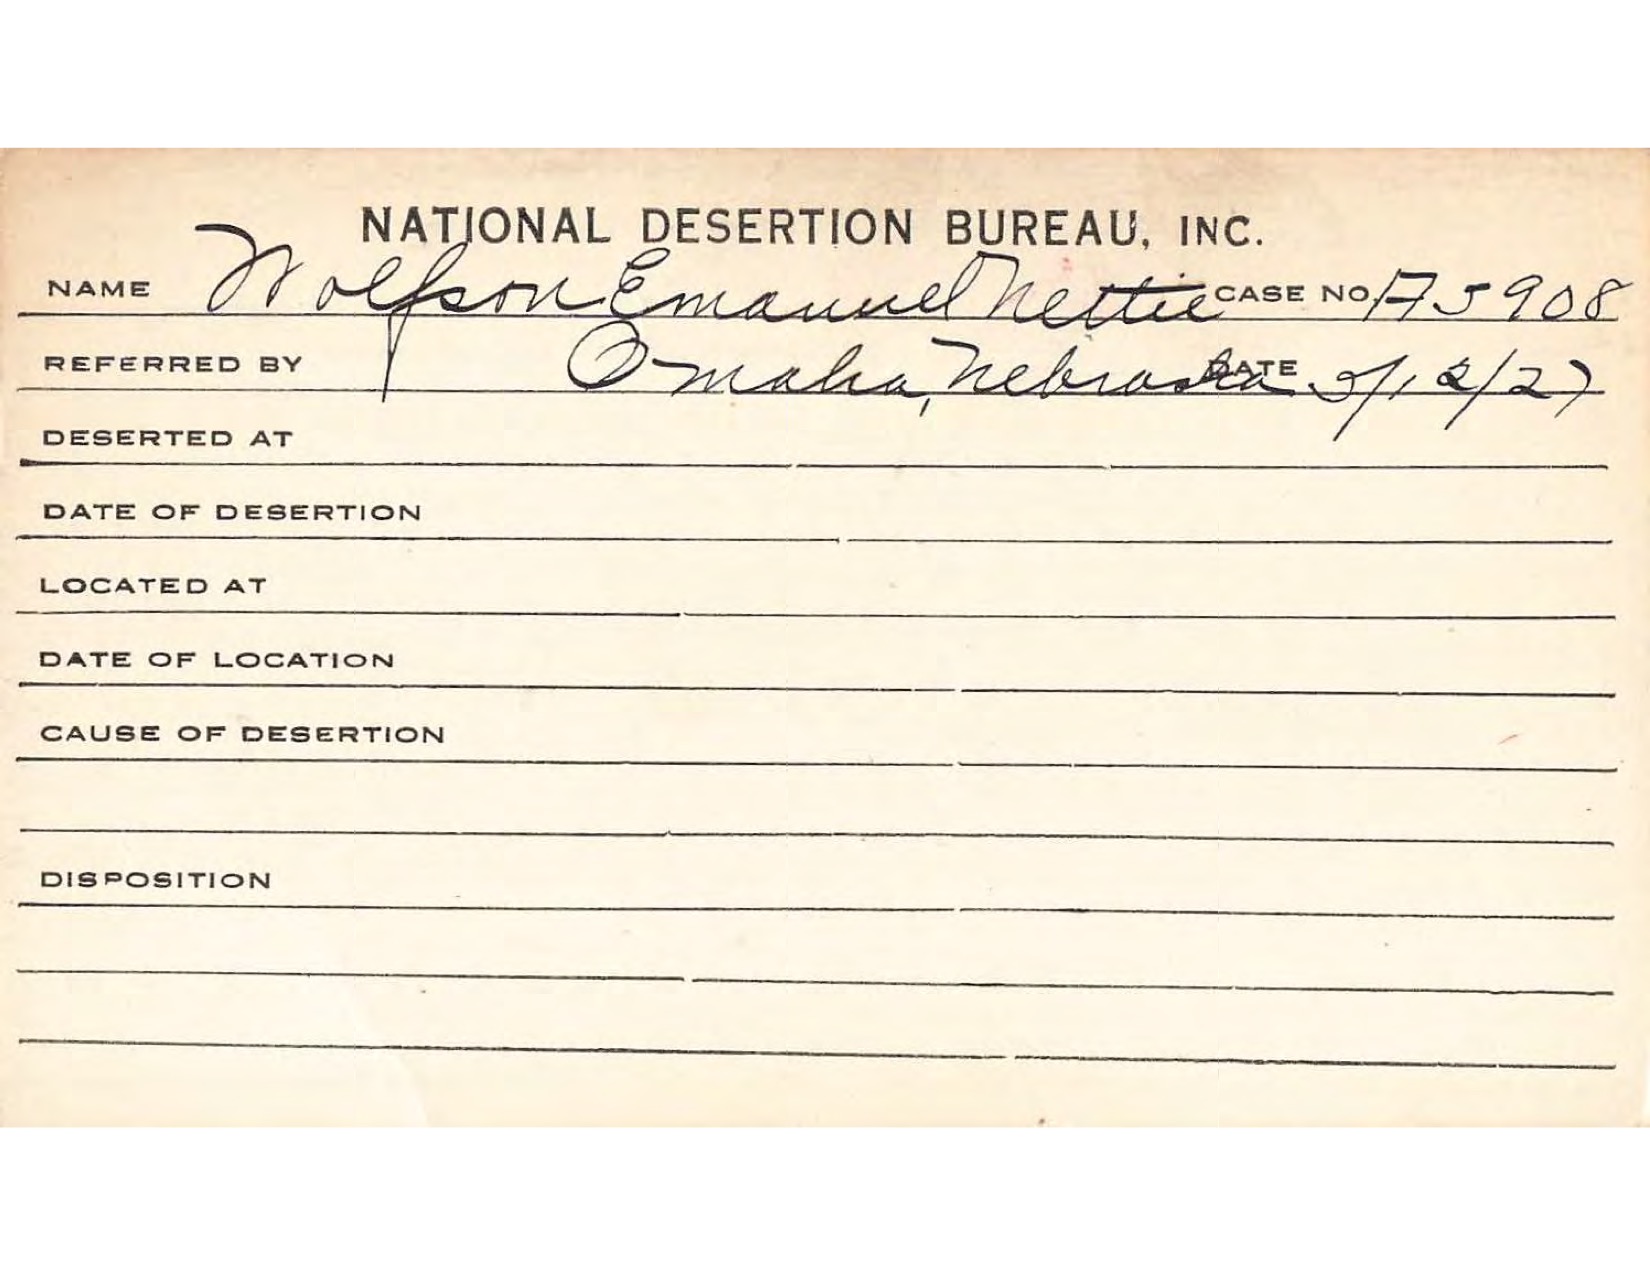 NATIONAL DESERTION BUREAU, INC.
NAME Wolfson Emanuel Nettie CASE NO. A5908
REFERRED BY Omaha, Nebraska DATE 5/12/27
DESERTED AT
DATE OF DESERTION
LOCATED AT
DATE OF LOCATION
CAUSE OF DESERTION
DISPOSITION